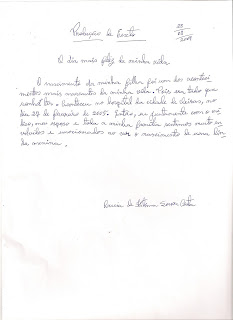 Produção de Texto
28
08
2009
O dia mais feliz de minha vida.
O nascimento da minha filha foi um dos aconteci
mentos mais marcantes da minha vida. Pois era tudo que
sonhei ter. Aconteceu no hospital da cidade de
dia 27 de fevereiro de 2005. Então, eu juntamente com o mé
dico, meu esposo e toda a minha família sentimos muito or
gulhosos e emocionados ao ver o nascimento de uma lin
da menina.
de